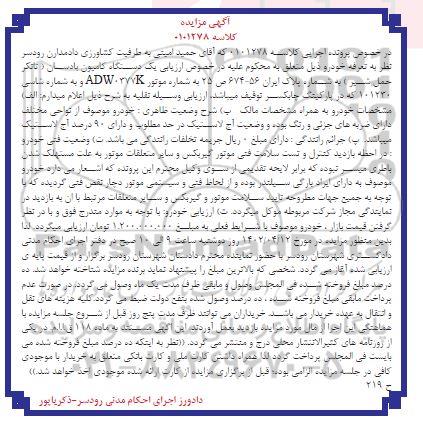 آگهی مزایده
کلاسه ۰۱۰۱۲۷۸
در خصوص پرونده اجرایی کلاسه ۰۱۰۱۲۷۸ که آقای حمید امینی به طرفیت کشاورزی دادمدارن رودسر
نظر به تعرفه خودرو ذیل متعلق به محکوم علیه در خصوص ارزیابی یک دستگاه کامیون بادسان ( تانکر
حمل شیر) به شماره پلاک ایران ۵۶-۶۷۴ ص ۲۵ به شماره موتور ADW۰۳۷۷K و به شماره شاسی
۱۰۱۲۳۰ که در پارکینگ چابکسر توقیف میباشد ارزیابی وسیله نقلیه به شرح ذیل اعلام میدارم: الف)
مشخصات خودرو به همراه مشخصات مالک ب) شرح وضعیت ظاهری : خودرو موصوف از نواحی مختلف
دارای ضربه های جزئی و رنگ بوده و وضعیت آج لاستیک در حد مطلوب و دارای ۹۰ درصد آج لاستیک
میباشد. پ) جرائم رانندگی : دارای مبلغ ۰ ریال جریمه تخلفات رانندگی می باشد. ت) وضعیت فنی خودرو
: در لحظه بازدید کنترل و تست سلامت فنی موتور گیربکس و سایر متعلقات موتور به علت مستهلک شدن
باطری میسر نبوده که برابر لایحه تقدیمی از سوی وکیل محترم این پرونده که اشعار می دارد خودرو
موصوف به دارای ایراد پارگی سیلندر بوده و از لحاظ فنی و سیستمی موتور دچار نقص فنی گردیده که با
توجه به جمیع جهات مطروحه تایید سلامت موتور و گیربکس و سایر متعلقات مرتبط با آن به بازدید در
نمایندگی مجاز شرکت مربوطه موکول میگردد. ث) ارزیابی خودرو: با توجه به موارد مندرج فوق و با در نظر
گرفتن قیمت بازار ، خودرو موصوف با شرایط فعلی به مبلغ ۱.۲۰۰.۰۰۰.۰۰۰ تومان ارزیابی میگردد. لذا
بدین منظور مزایده در مورخ ۱۴۰۲/۰۴/۱۲ روز دوشنبه ساعت ۹ الی ۱۰ صبح در دفتر اجرای احکام مدنی
دادگستری شهرستان رودسر با حضور نماینده محترم دادستان شهرستان رودسر برگزار و از قیمت پایه ی
ارزیابی شده آغاز می گردد. شخصی که بالاترین مبلغ را پیشنهاد نماید برنده مزایده شناخته خواهد شد. ده
درصد مبلغ فروخته شده فی المجلس وصول و مابقی ظرف مدت یک ماه وصول می گردد. در صورت عدم
پرداخت مابقی مبلغ فروخته شده ، ده درصد وصول شده بنفع دولت ضبط می گردد. کلیه هزینه های نقل
و انتقال به عهده خریدار می باشد. خریداران می توانند ظرف مدت پنج روز قبل از شروع جلسه مزایده با
هماهنگی این اجرا از مال مورد مزایده بازدید بعمل آوردند. این آگهی مستند به ماده ۱۱۸ ق.ا.ا.م در یکی
از روزنامه های کثیرالانتشار محلی درج و منتشر می گردد. ((نظر به اینکه ده درصد مبلغ فروخته شده می
بایست فی المجلس پرداخت گردد لذا همراه داشتن کارت ملی و کارت بانکی متعلق به خریدار با موجودی
کافی در جلسه مزایده الزامی بوده؛ قبل از برگزاری مزایده از کارت ارائه شده موجودی اخذ خواهد شد.))
ح ۲۱۹
دادورز اجرای احکام مدنی رودسر-ذکریاپور